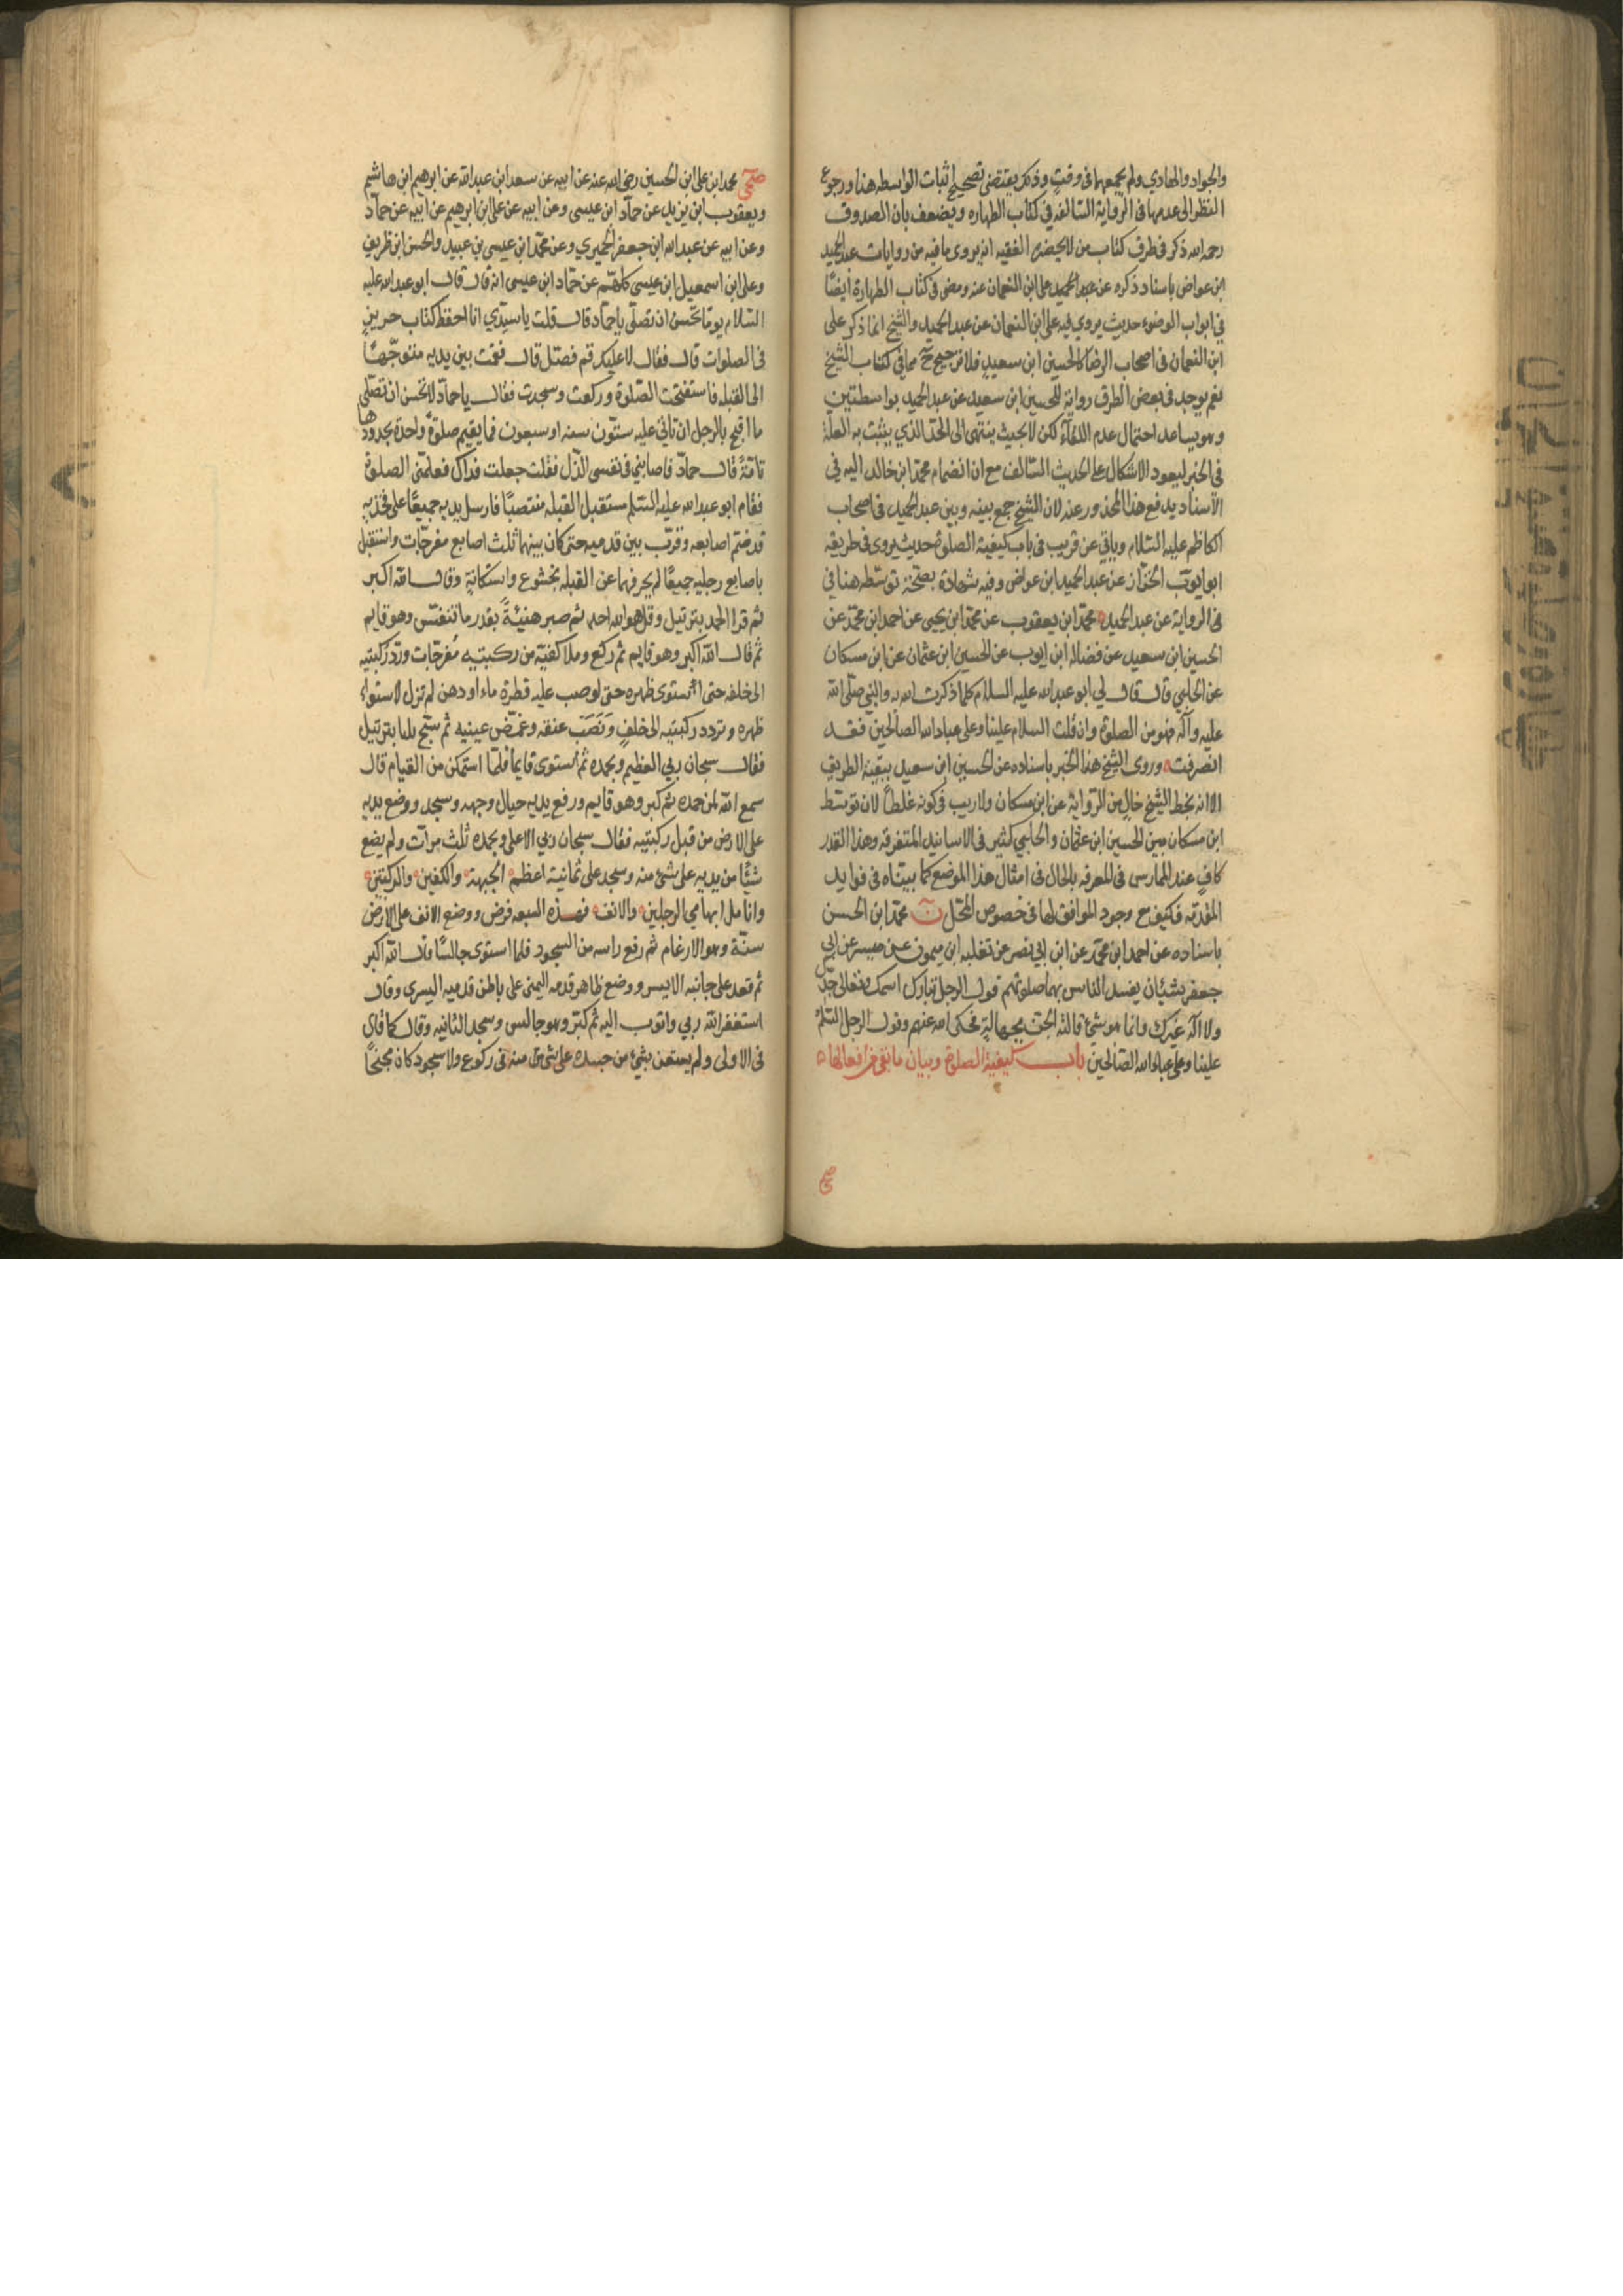 والجواد والهادي ولم يجمعهما في وقت وذلك يقتضي تصحيح اثبات الواسطه هنا ورجوع
النظر الى عدمها في الرواية السالفه في كتاب الطهاره ويضعف بان الصدوق
رحمه الله ذكر في طرق كتاب من لا يحضره الفقيه انه يروى ما فيه من روايات عبد الحميد
ابن عواض باسناد ذكره عن عبد الحميد على ابن النعمان عنه ومضى في كتاب الطهارة أيضًا
في ابواب الوضوء حديث يروي فيه على ابن النعمان عن عبد الحميد والشيخ انما ذكر على
ابن النعمان في اصحاب الرضا كالحسين ابن سعيد فلا ترجيح ح مما في كتاب الشيخ
نعم يوجد في بعض الطرق رواية للحسين ابن سعيد عن عبد الحميد بواسطتين
وهو يساعد احتمال عدم اللقآء لكن لا بحيث ينتهى الى الحد الذي يثبت به العلة
في الخبر ليعود الاشكال على الحديث السالف مع ان انضمام محمد ابن خالد اليه في
الاسناد يدفع هذا المحذور عنه لان الشيخ جمع بينه وبين عبد الحميد في اصحاب
الكاظم عليه السلام وياتي عن قريب في باب كيفية الصلوة حديث يروى في طريقه
ابو ايوب الخزّاز عن عبد الحميد ابن عواض وفيه شهادة بصحّة توسّطه هنا في
في الرواية عن عبد الحميد محمّد ابن يعقوب عن محمّد ابن يحيى عن احمد ابن محمّد عن
الحسين ابن سعيد عن فضالة ابن ايوب عن الحسين ابن عثمان عن ابن مسكان
عن الحلبي قال قال لي ابو عبد الله عليه السلام كلما ذكرت الله به والنبي صلى الله
عليه وآله فهو من الصلوة وان قلت السلام علينا وعلى عباد الله الصالحين فقد
انصرفت وروى الشيخ هذا الخبر باسناده عن الحسين ابن سعيد ببقية الطريق
الا انه بخط الشيخ خالٍ من الرّواية عن ابن مسكان ولا ريب في كونه غلطًا لان توسّط
ابن مسكان بين الحسين ابن عثمان والحلبي كثير في الاسانيد المتفرقه وهذا القدر
كافٍ عند الممارس في المعرفه بالحال في امثال هذا الموضع كما بيّناه في فوايد
المقدّمه فكيف مع وجود الموافق لها في خصوص المحلّ ن محمّد ابن الحسن
باسناده عن احمد ابن محمّد عن ابن ابي نصر عن ثعلبه ابن ميمون عن ميسر عن ابي
جعفر شيئان يفسد الناس بهما صلوتهم قول الرجل تبارك اسمك وتعالى جدّك
ولا اله غيرك وانما هو شيئ قالته الجن بجهالةٍ فحكى الله عنهم وقول الرجل السّلم
علينا وعلى عباد الله الصّالحين باب كيفية الصلوة وبيان ما بقى من افعالها
صحى
صحى محمد ابن على ابن الحسين رضى الله عنه عن ابيه عن سعد ابن عبد الله عن ابرهيم ابن هاشم
ويعقوب ابن يزيد عن حمآد ابن عيسى وعن ابيه عن على ابن ابرهيم عن ابيه عن حمآد
وعن ابيه عن عبد الله ابن جعفر الحميري وعن محمّد ابن عيسى بن عبيد والحسن ابن ظريف
وعلى ابن اسمعيل ابن عيسى كلهّم عن حمّاد ابن عيسى انه قال قال ابو عبد الله عليه
السّلام يومًا تحسن ان تصلّى يا حمّاد قال قلت يا سيّدي انا احفظ كتاب حريزٍ
في الصلوات قال فقال لا عليك قم فصّل قال فقمت بين يديه متوجّهًا
الى القبله فاستفتحت الصّلوة وركعت وسجدت فقال يا حمآد لا تحسن ان تصلّى
ما اقبح بالرجل ان تاتي عليه ستّون سنه او سبعون فما يقيم صلوةً واحدة بحدودها
تامّةً قال حمآد فاصابني في نفسى الذّل فقلت جعلت فداك فعلّمنى الصلوة
فقام ابو عبد الله عليه السّلم مستقبل القبله منتصبًا فارسل يديه جميعًا على فخذيه
قد ضمّ اصابعه وقرّب بين قدميه حتى كان بينهما ثلث اصابع مفرجّات واستقبل
باصابع رجليه جميعًا لم يحرفهما عن القبله بخشوع واستكانةٍ وقال الله اكبر
ثم قرا الحمد بترتيل وقل هو الله احد ثم صبر هنيئةً بقدر ما تنفّس وهو قايم
ثمّ قال الله اكبر وهو قايم ثم ركع وملا كفيّه من ركبتيه مُفرجّات وردّ ركبتيه
الى خلفه حتى استوى ظهره حتى لو صب عليه قطرة ماء او دهن لم تزل لاستواء
ظهره وتردد ركبتيه الى خلفٍ ونَصَبَ عنقه وغمّض عينيه ثم سبّح ثلثا بترتيل
فقال سبحان ربي العظيم وبحمده ثمّ استوى قايما فلمّا استمكن من القيام قال
سمع الله لمن حمده ثم كبر وهو قايم ورفع يديه حيال وجهه وسجد ووضع يديه
على الارض من قبل ركبتيه فقال سبحان ربي الاعلى وبحمده ثلث مرآت ولم يضع
شيًا من يديه على شيئ منه وسجد على ثمانية اعظم الجبهة والكفين والركبتين
وانامل ابهامي الرجلين والانف فهذه السبعه فرض ووضع الانف على الارض
سنّة وهو الارغام ثم رفع راسه من السجود فلما استوى جالسًا قال الله اكبر
ثم قعد على جانبه الايسر ووضع ظاهر قدمه اليمنى على باطن قدميه اليسرى وقال
استغفر الله ربي واتوب اليه ثم كبّر وهو جالس وسجد الثانيه وقال كما قال
في الاولى ولم يستعن بشيئ من جسده على شئ منه في ركوع ولا سجود كان مجنّحًا